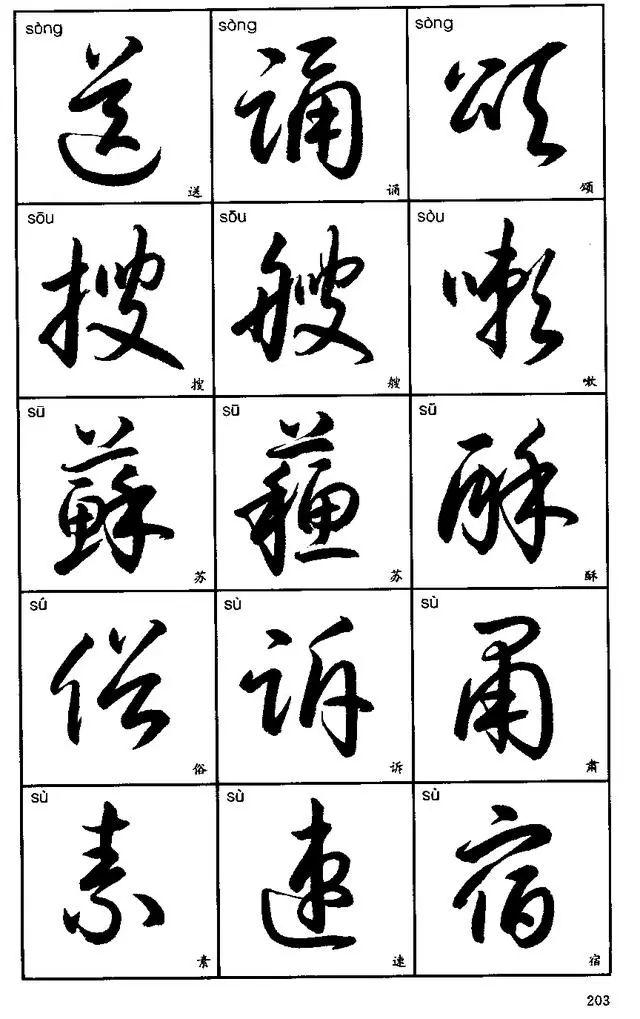 sòng sòng sòng
送 诵 颂
送 诵 颂
sōu sōu sòu
搜 艘 嗽
搜 艘 嗽
sū sū sū
蘇 蘓 酥
苏 苏 酥
sú sù sù
俗 诉 肃
俗 诉 肃
sù sù sù
素 速 宿
素 速 宿
203